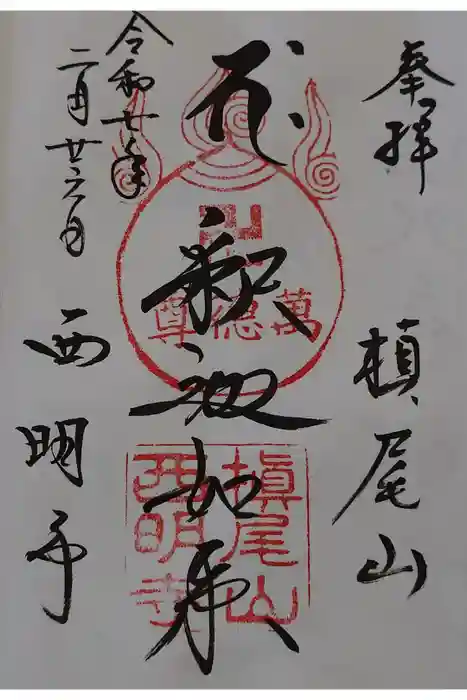 奉拝
槙尾山
釈迦如来
萬徳尊
槙尾山
西明寺
令和七年
二月廿六日
西明寺